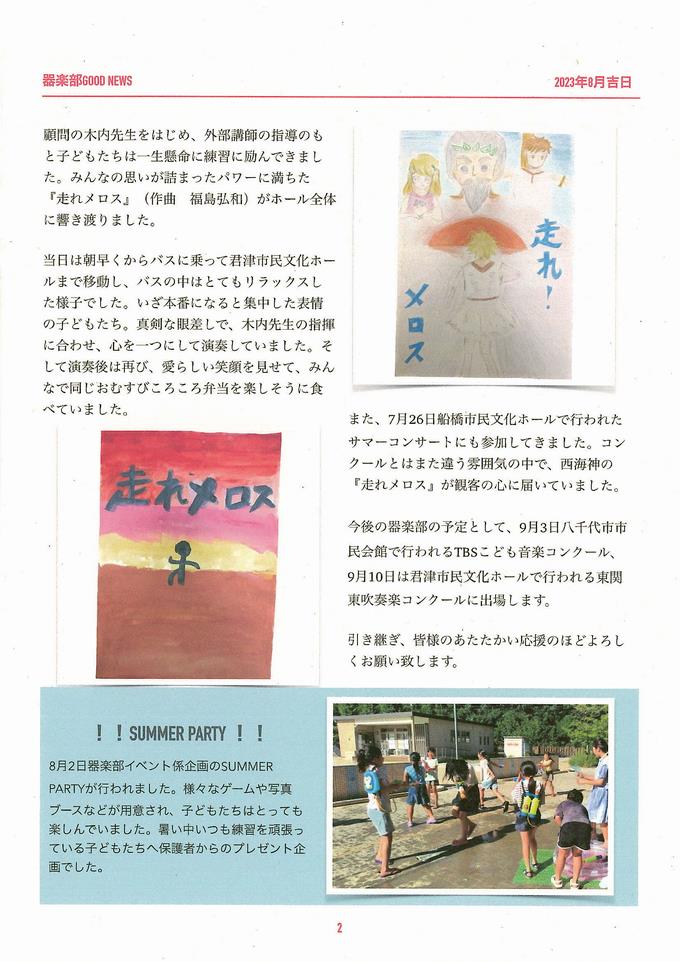 器楽部GOOD NEWS
2023年8月吉日
顧問の木内先生をはじめ、外部講師の指導のも
と子どもたちは一生懸命に練習に励んできまし
た。みんなの思いが詰まったパワーに満ちた
『走れメロス』（作曲　福島弘和）がホール全体
に響き渡りました。
当日は朝早くからバスに乗って君津市民文化ホー
ルまで移動し、バスの中はとてもリラックスし
た様子でした。いざ本番になると集中した表情
の子どもたち。真剣な眼差しで、木内先生の指揮
に合わせ、心を一つにして演奏していました。そ
して演奏後は再び、愛らしい笑顔を見せて、みん
なで同じおむすびころころ弁当を楽しそうに食
べていました。
走れメロス
走れ！
メロス
また、7月26日船橋市民文化ホールで行われた
サマーコンサートにも参加してきました。コン
クールとはまた違う雰囲気の中で、西海神の
『走れメロス』が観客の心に届いていました。
今後の器楽部の予定として、9月3日八千代市市
民会館で行われるTBSこども音楽コンクール、
9月10日は君津市民文化ホールで行われる東関
東吹奏楽コンクールに出場します。
引き継ぎ、皆様のあたたかい応援のほどよろし
くお願い致します。
！！SUMMER PARTY ！！
8月2日器楽部イベント係企画のSUMMER
PARTYが行われました。様々なゲームや写真
ブースなどが用意され、子どもたちはとっても
楽しんでいました。暑い中いつも練習を頑張っ
ている子どもたちへ保護者からのプレゼント企
画でした。
2